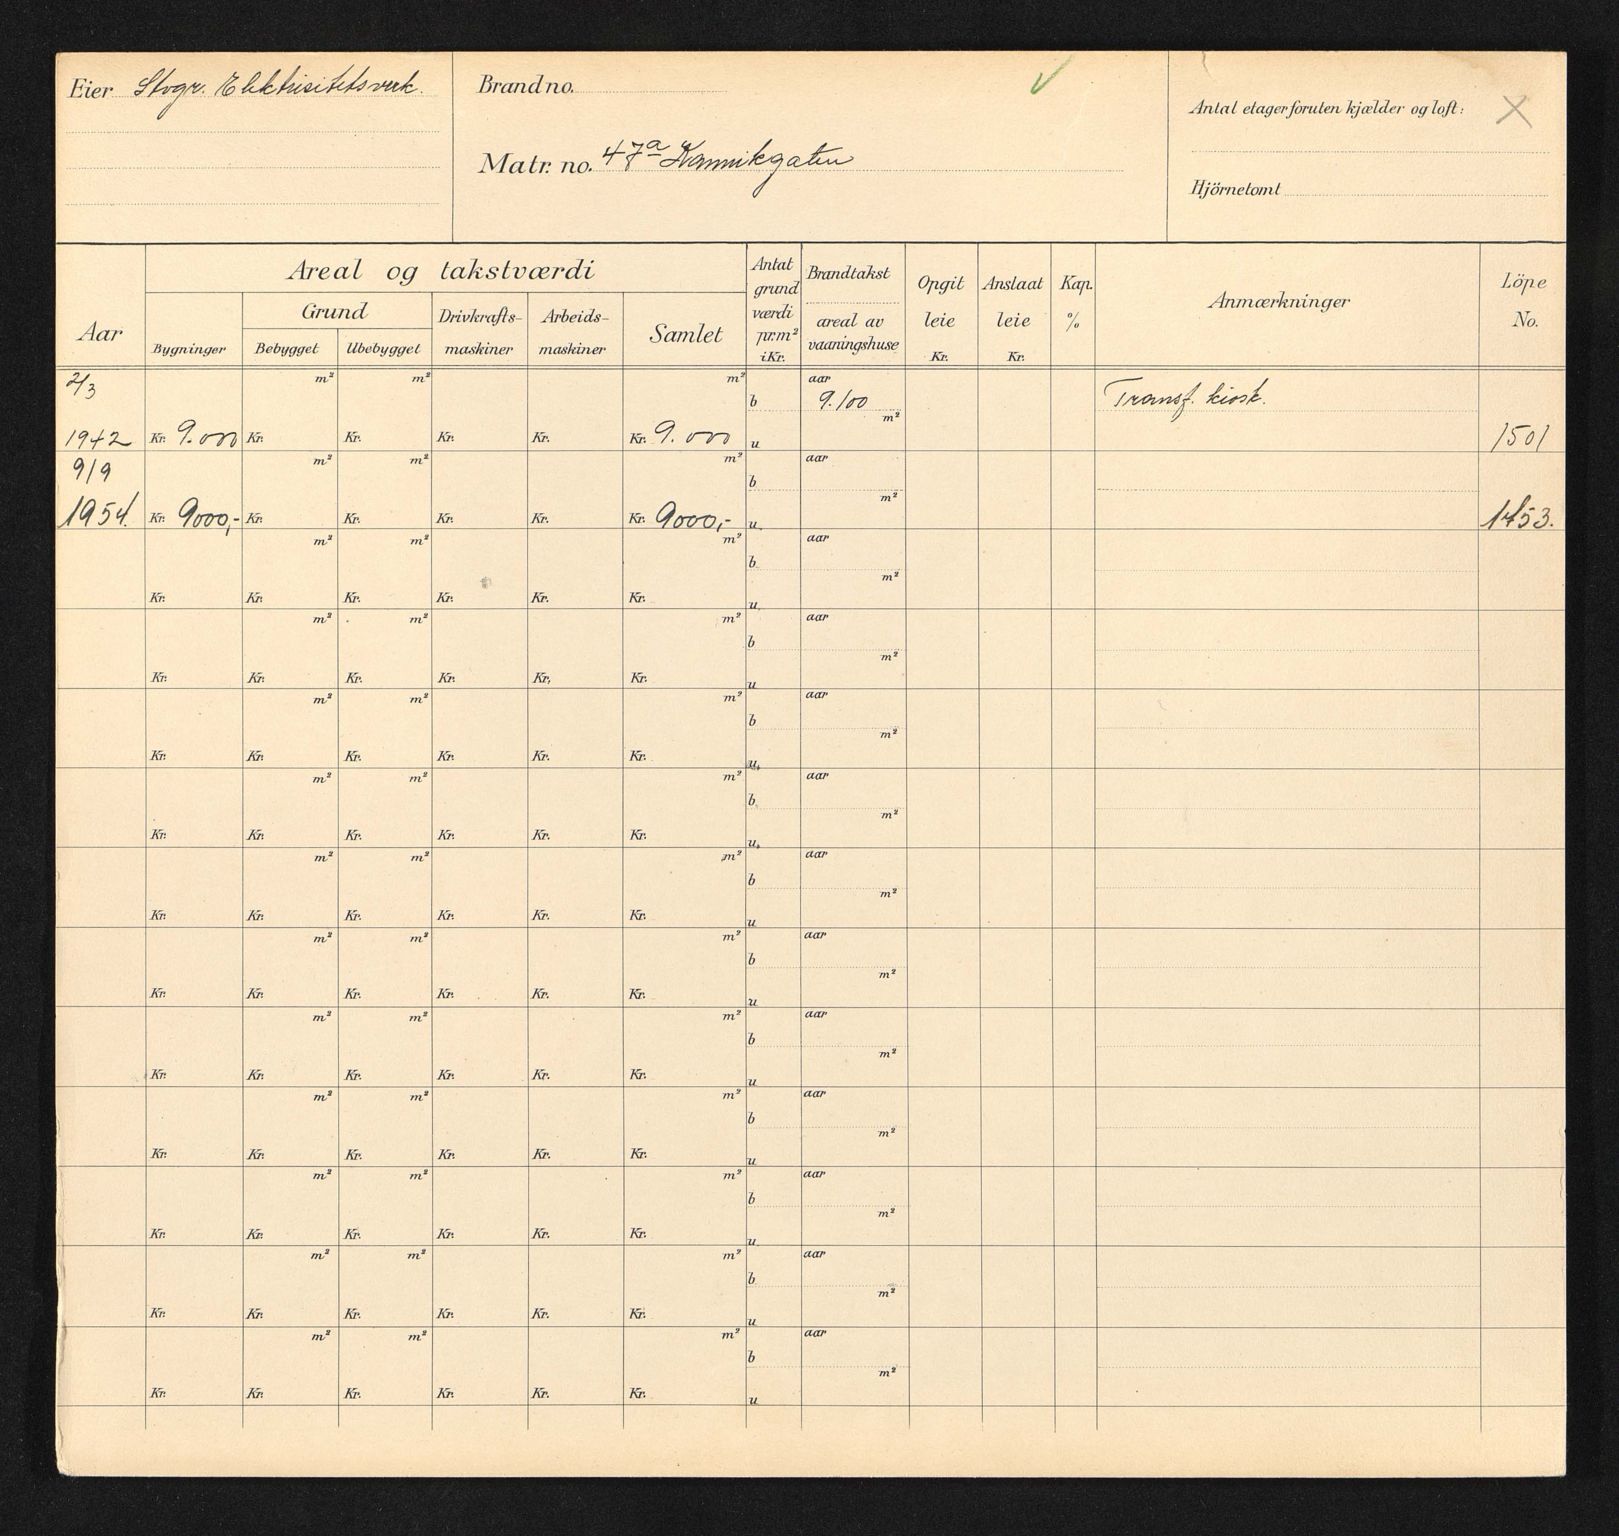 Eier Stvgr. Elektrisitetsverk.
Brand no.
Matr. no. 47a Kannikgaten
Antal etager foruten kjælder og loft:
Hjörnetomt
Aar
Areal og takstværdi
Grund
Bygninger
Bebygget
Ubebygget
Drivkrafts-
maskiner
Arbeids-
maskiner
Samlet
Antat
grund
værdi
pr. m²
i Kr.
Brandtakst
areal av
vaaningshuse
Opgit
leie
Kr.
Anslaat
leie
Kr.
Kap.
%
Anmærkninger
Löpe
No.
2/3 m² m² m² aar
b 9.100 Transf. kiosk.
m²
1942 Kr. 9.000 Kr. Kr. Kr. Kr. Kr. 9.000 u 1501
9/9 m² m² m² aar
b
m²
1954. Kr. 9000,- Kr. Kr. Kr. Kr. Kr. 9000,- u 1453.
m² m² m² aar
b
m²
Kr. Kr. Kr. Kr. Kr. Kr. u
m² m² m² aar
b
m²
Kr. Kr. Kr. Kr. Kr. Kr. u
m² m² m² aar
b
m²
Kr. Kr. Kr. Kr. Kr. Kr. u
m² m² m² aar
b
m²
Kr. Kr. Kr. Kr. Kr. Kr. u
m² m² m² aar
b
m²
Kr. Kr. Kr. Kr. Kr. Kr. u
m² m² m² aar
b
m²
Kr. Kr. Kr. Kr. Kr. Kr. u
m² m² m² aar
b
m²
Kr. Kr. Kr. Kr. Kr. Kr. u
m² m² m² aar
b
m²
Kr. Kr. Kr. Kr. Kr. Kr. u
m² m² m² aar
b
m²
Kr. Kr. Kr. Kr. Kr. Kr. u
m² m² m² aar
b
m²
Kr. Kr. Kr. Kr. Kr. Kr. u
m² m² m² aar
b
m²
Kr. Kr. Kr. Kr. Kr. Kr. u